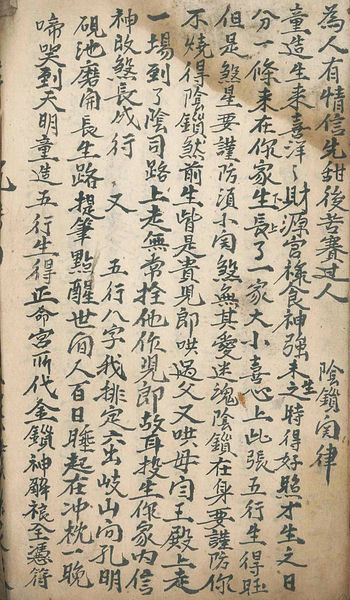 為人有情信先甜後苦賽过人　陰鎖関律
童造生来喜洋々財源官様食神強未之生時得好照才生之日
分一條来在你家生下長了一家大小喜心上此張五行生得旺
但是煞星要謹防須小関煞無其愛迷魂陰鎖在身要謹防你
不燒得陰鎖煞前生皆是貴児郎哄過父又哄母閆王殿上走
一場到了陰司路上走無常拴他作児郎故再投生你家内信
神收煞長成行　又　五行八字我排定六出岐山问孔明
硯池磨開長生路提筆點醒世间人百日睡起在冲枕一晚
啼哭到天明童造五行生得正命宮所代金鎖神解禳全憑符